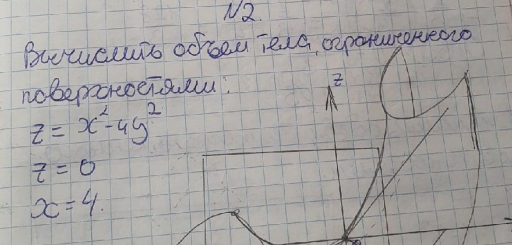 N2.
Вычислить объем тела, ограниченного
поверхностями:
z = x² - 4y²
z = 0
x = 4.
z